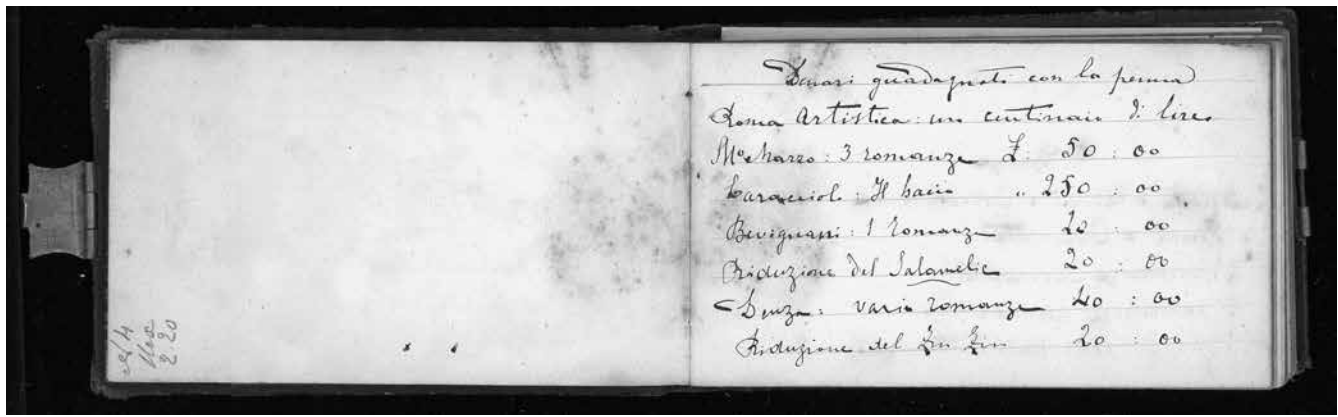 Denari guadagnati con la penna
Roma Artistica: un centinaio di lire
Mo Marzo: 3 romanze £: 50 : 00
Caracciolo: Il bacio " 250 : 00
Bevignani: 1 romanza 20 : 00
Riduzione del Salamelic 20 : 00
Denza: varie romanze 40 : 00
Riduzione del Zin Zin 20 : 00
2.20